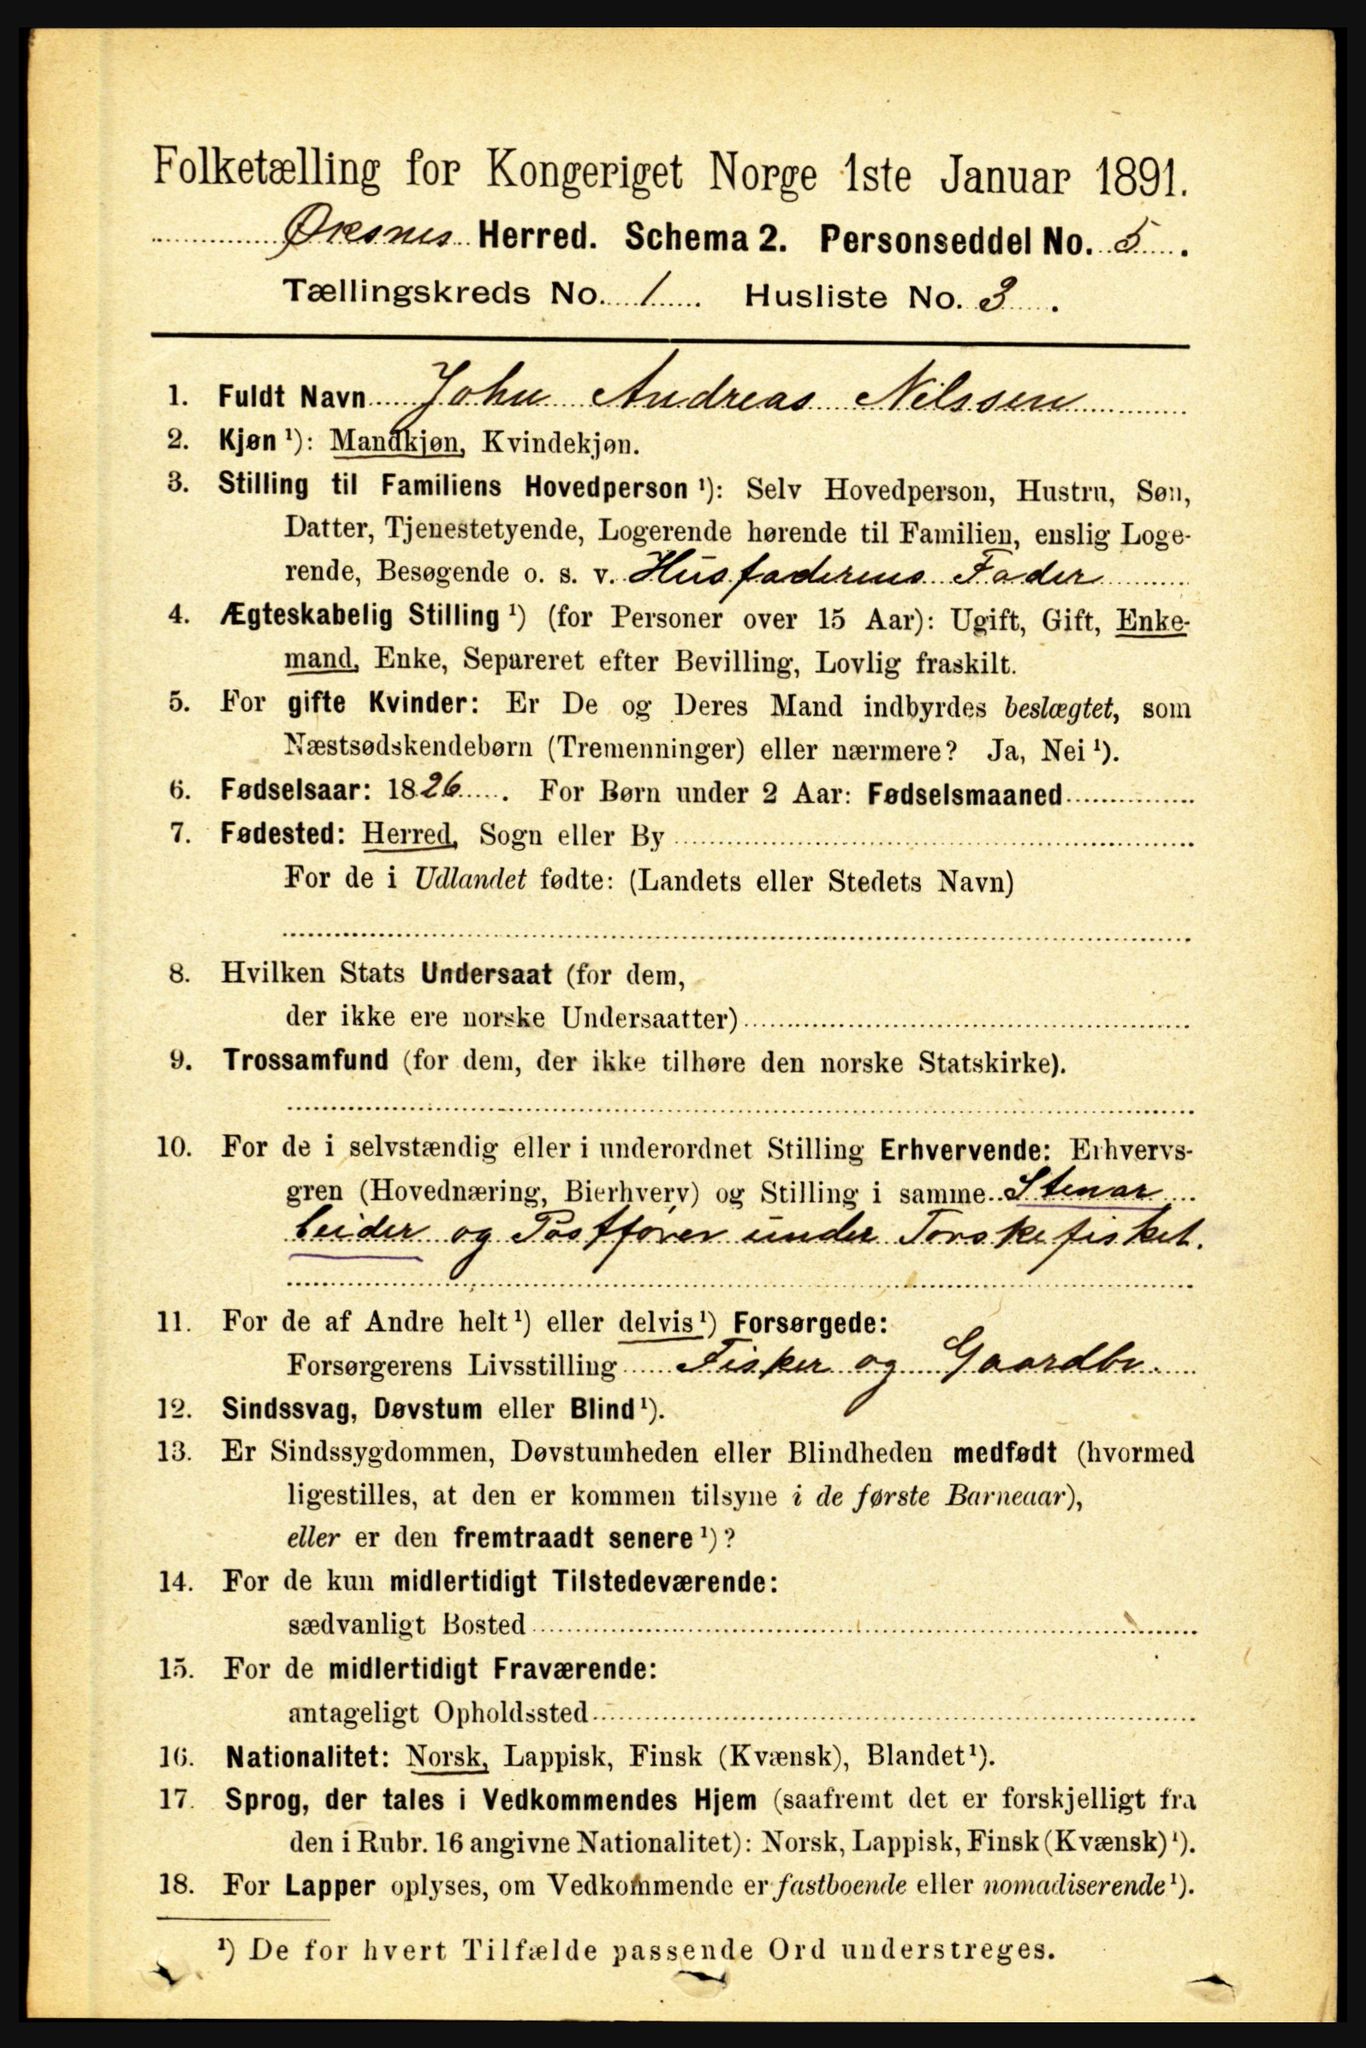 Folketælling for Kongeriget Norge 1ste Januar 1891.
Øksnes Herred. Schema 2. Personseddel No. 5.
Tællingskreds No. 1 Husliste No. 3.
1. Fuldt Navn John Andreas Nilssen
2. Kjøn ¹): Mandkjøn, Kvindekjøn.
3. Stilling til Familiens Hovedperson ¹): Selv Hovedperson, Hustru, Søn,
Datter, Tjenestetyende, Logerende hørende til Familien, enslig Loge-
rende, Besøgende o. s. v. Husfaderens Fader
4. Ægteskabelig Stilling ¹) (for Personer over 15 Aar): Ugift, Gift, Enke-
mand, Enke, Separeret efter Bevilling, Lovlig fraskilt.
5. For gifte Kvinder: Er De og Deres Mand indbyrdes beslægtet, som
Næstsødskendebørn (Tremenninger) eller nærmere? Ja, Nei ¹).
6. Fødselsaar: 1826. For Børn under 2 Aar: Fødselsmaaned
7. Fødested: Herred, Sogn eller By
For de i Udlandet fødte: (Landets eller Stedets Navn)
8. Hvilken Stats Undersaat (for dem,
der ikke ere norske Undersaatter)
9. Trossamfund (for dem, der ikke tilhøre den norske Statskirke).
10. For de i selvstændig eller i underordnet Stilling Erhvervende: Erhvervs-
gren (Hovednæring, Bierhverv) og Stilling i samme Stenar
beider og Postfører under Torskefisket.
11. For de af Andre helt ¹) eller delvis ¹) Forsørgede:
Forsørgerens Livsstilling Fisker og Gaardbr.
12. Sindssvag, Døvstum eller Blind ¹).
13. Er Sindssygdommen, Døvstumheden eller Blindheden medfødt (hvormed
ligestilles, at den er kommen tilsyne i de første Barneaar),
eller er den fremtraadt senere ¹)?
14. For de kun midlertidigt Tilstedeværende:
sædvanligt Bosted
15. For de midlertidigt Fraværende:
antageligt Opholdssted
16. Nationalitet: Norsk, Lappisk, Finsk (Kvænsk), Blandet ¹).
17. Sprog, der tales i Vedkommendes Hjem (saafremt det er forskjelligt fra
den i Rubr. 16 angivne Nationalitet): Norsk, Lappisk, Finsk (Kvænsk) ¹).
18. For Lapper oplyses, om Vedkommende er fastboende eller nomadiserende ¹).
¹) De for hvert Tilfælde passende Ord understreges.